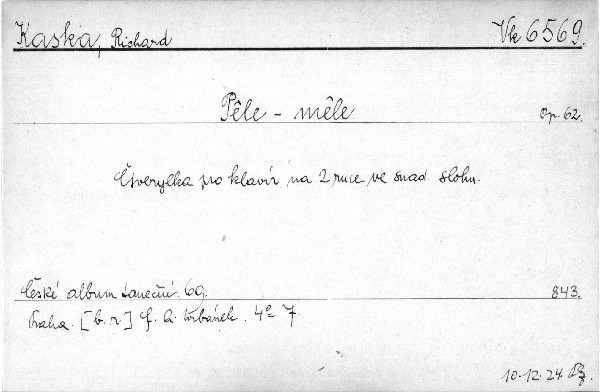 Kaska, Richard Vk 6569.
Pêle - mêle Op. 62.
Čtverylka pro klavír na 2 ruce ve snad. slohu.
České album taneční. 69. 843.
Praha. [b. r.] F. A. Urbánek. 4° 7
10. 12. 24.